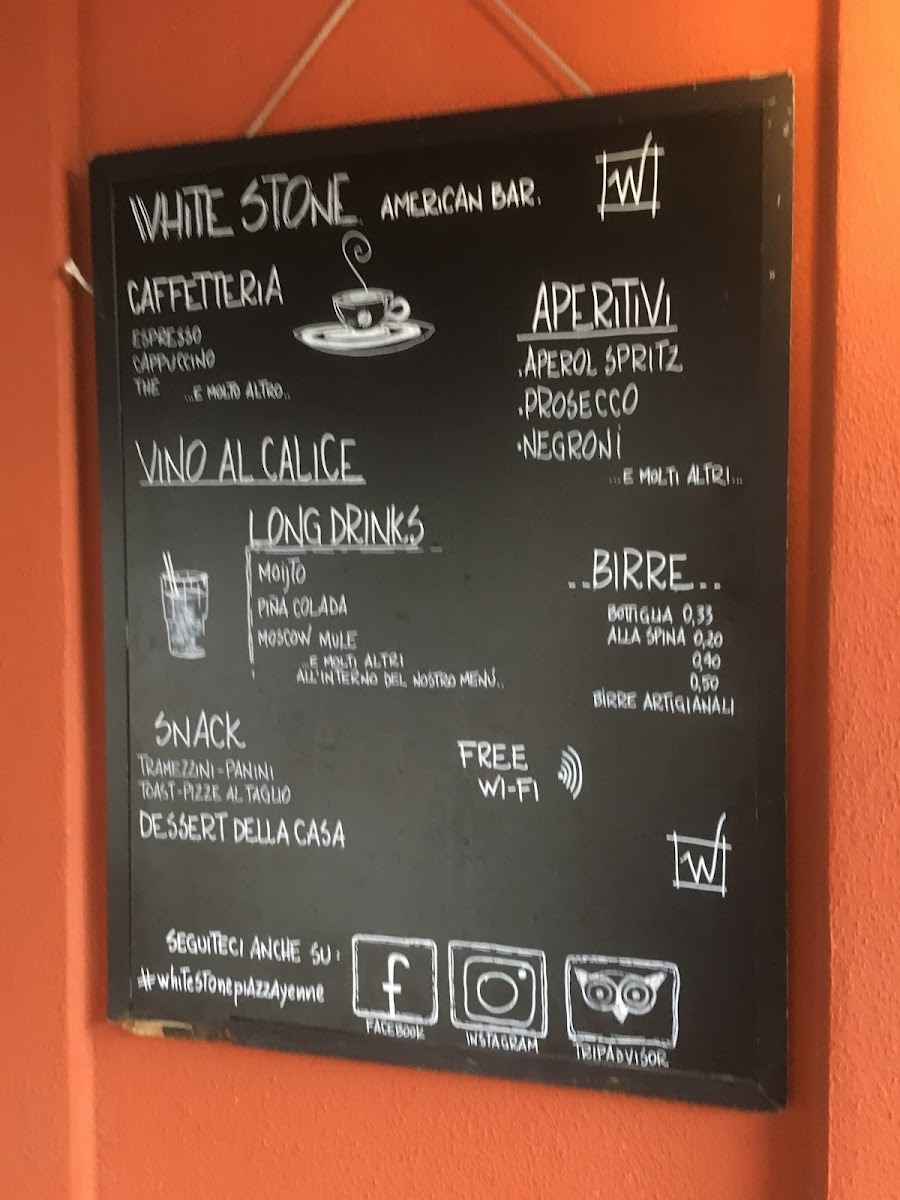 WHITE STONE AMERICAN BAR.
W
CAFFETTERIA
ESPRESSO
CAPPUCCINO
THE
...E MOLTO ALTRO..
APERITIVI
.APEROL SPRITZ
.PROSECCO
.NEGRONI
...E MOLTI ALTRI...
VINO AL CALICE
LONG DRINKS
MOIJTO
PIÑA COLADA
MOSCOW MULE
...E MOLTI ALTRI
ALL'INTERNO DEL NOSTRO MENÚ..
..BIRRE..
BOTTIGLIA 0,33
ALLA SPINA 0,20
0,40
0,50
BIRRE ARTIGIANALI
SNACK
TRAMEZZINI-PANINI
TOAST-PIZZE AL TAGLIO
DESSERT DELLA CASA
FREE
WI-FI
W
SEGUITECI ANCHE SU:
#whiteStonepiAzzAyenne
f
FACEBOOK
INSTAGRAM
TRIPADVISOR